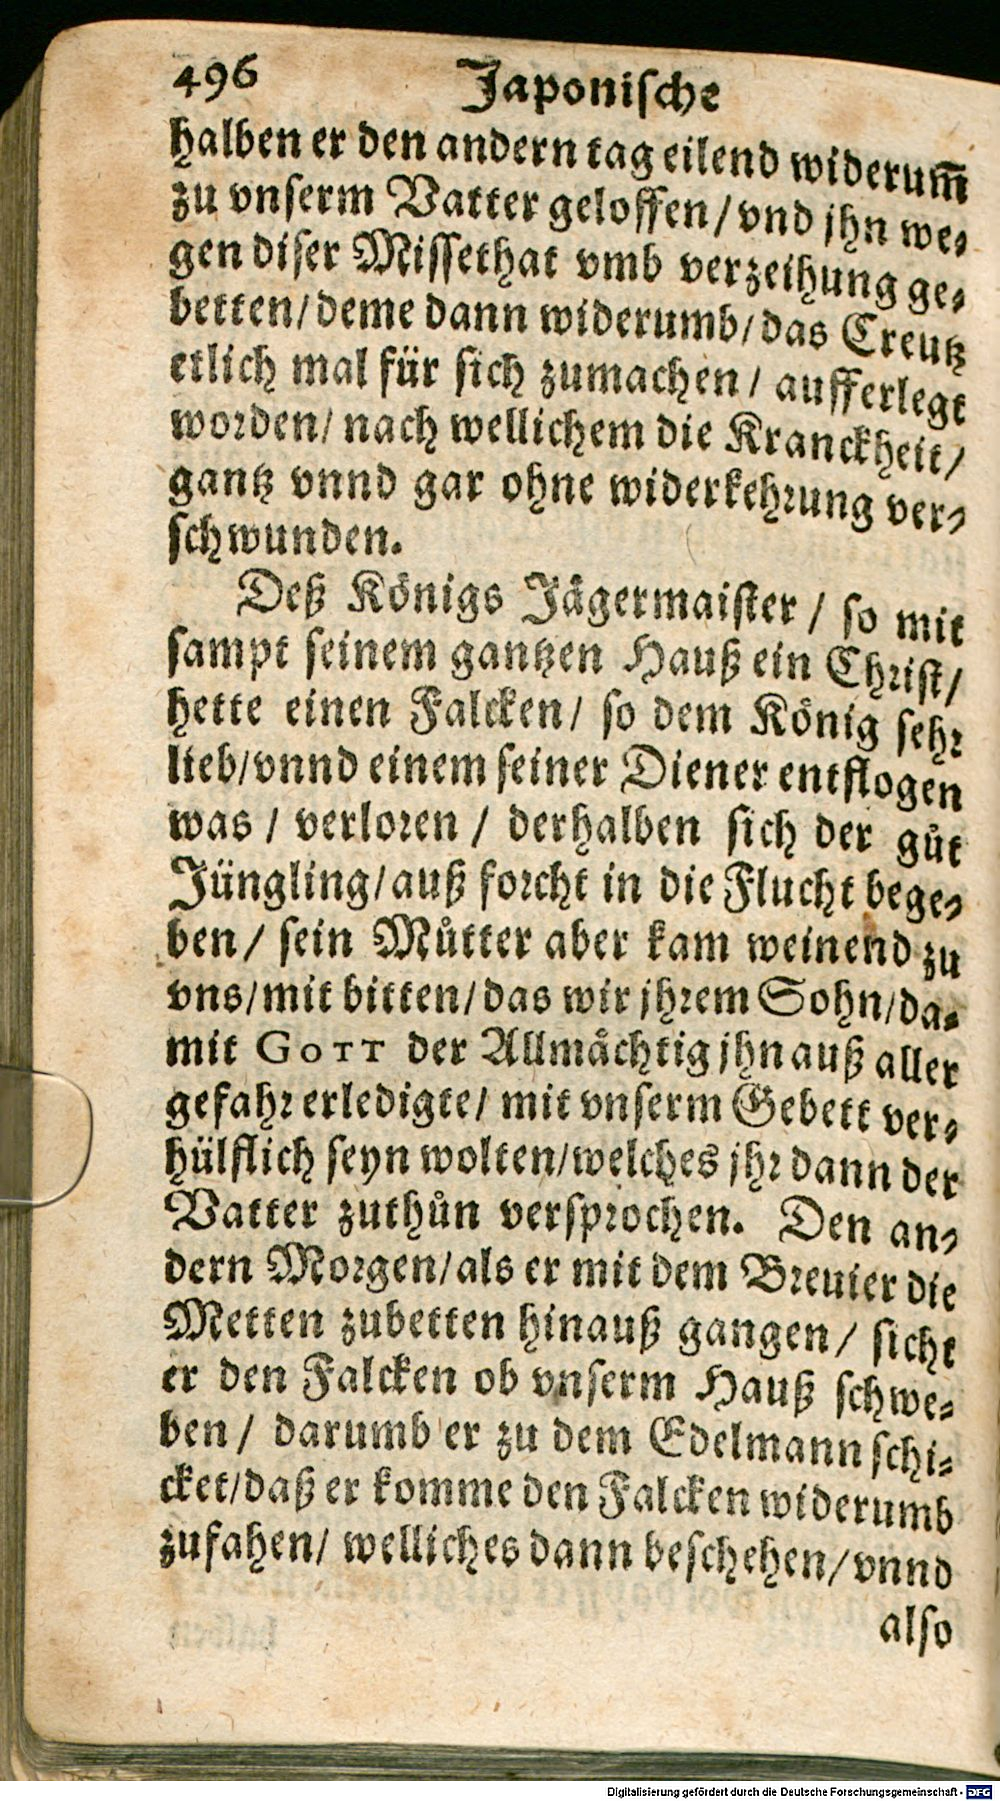 496 Japonische
halben er den andern tag eilend widerum̅
zu vnserm Vatter geloffen/ vnd jhn we-
gen diser Missethat vmb verzeihung ge-
betten/ deme dann widerumb/ das Creutz
etlich mal für sich zumachen/ aufferlegt
worden/ nach wellichem die Kranckheit/
gantz vnnd gar ohne widerkehrung ver-
schwunden.
Deß Königs Jägermaister/ so mit
sampt seinem gantzen Hauß ein Christ/
hette einen Falcken/ so dem König sehr
lieb/ vnnd einem seiner Diener entflogen
was/ verloren/ derhalben sich der gůt
Jüngling/ auß forcht in die Flucht bege-
ben/ sein Můtter aber kam weinend zu
vns/ mit bitten/ das wir jhrem Sohn/ da-
mit GOTT der Allmåchtig jhn auß aller
gefahr erledigte/ mit vnserm Gebett ver-
hülflich seyn wolten/ welches jhr dann der
Vatter zuthůn versprochen. Den an-
dern Morgen/ als er mit dem Breuier die
Metten zubetten hinauß gangen/ sicht
er den Falcken ob vnserm Hauß schwe-
ben/ darumb er zu dem Edelmann schi-
cket/ daß er komme den Falcken widerumb
zufahen/ welliches dann beschehen/ vnnd
also
Digitalisierung gefördert durch die Deutsche Forschungsgemeinschaft - DFG